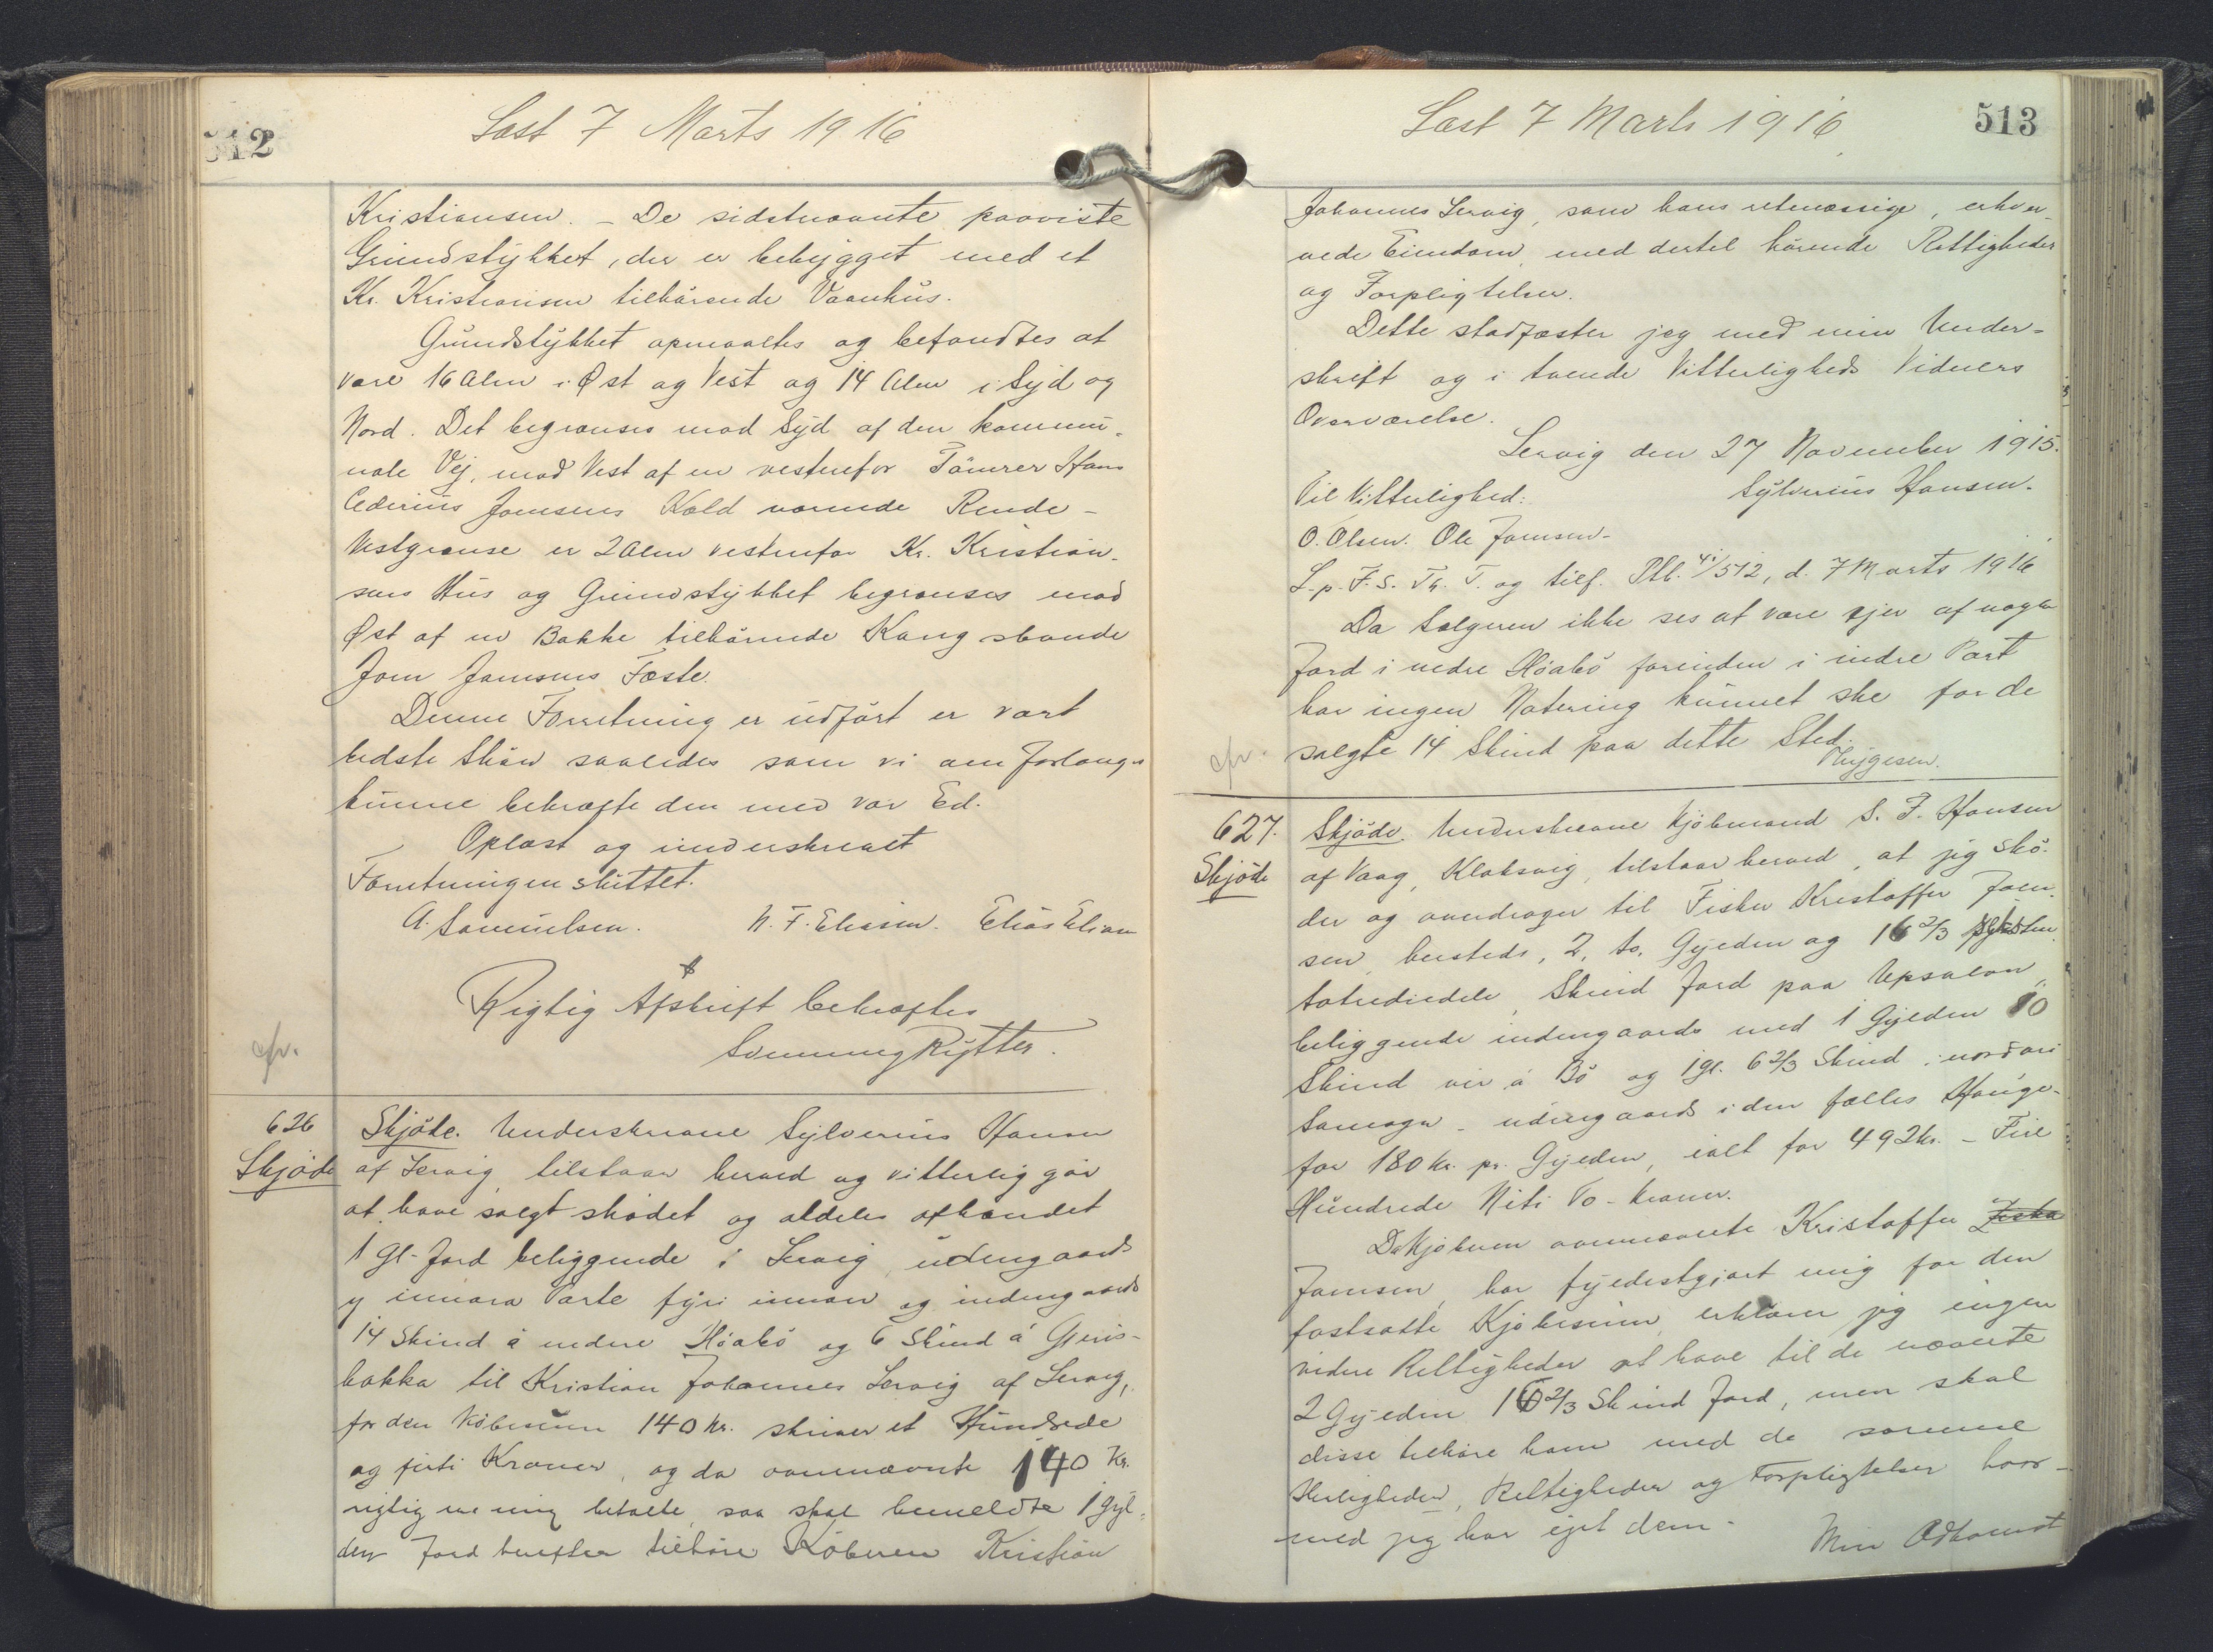 512
Læst 7 Marts 1916
Kristiansen. – De sidstnævnte paaviste
Grundstykket, der er bebygget med et
Kr. Kristiansen tilhørende Vaanhus.
Grundstykket opmaaltes og befandtes at
være 16 Alen i Øst og Vest og 14 Alen i Syd og
Nord. Det begrænses mod Syd af den kommu-
nale Vej, mod Vest af en vestenfor Tömrer Hans
Cederius Joensens Kald værende Rende –
Vestgrænse er 2 Alen vestenfor Kr. Kristian-
sens Hus og Grundstykket begrænses mod
Øst af en Bakke tilhörende Kongsbonde
Joen Joensens Fæste.
Denne Forretning er udfört er vort
bedste Skön saaledes som vi om forlanges
kunne bekræfte den med vor Ed.
Oplæst og underskrevet
Forretningen sluttet.
A. Samuelsen. N. F. Eliasen. Elias Eliasen
Rigtig Afskrift bekræftes
Svenning Rytter.
cfr.
626 Skjöde. Underskrevne Sylverius Hansen
Skjöde af Servig, tilstaar herved og vitterlig gör
at have solgt skødet og aldeles afhændet
1 Gl. Jord beliggende i Servig, udengaards
y innara Parte fyri innan og indengaards
14 Skind á nedre Höabö og 6 Skind á Gjeris-
bakka til Kristian Johannes Servig af Servig,
for den Köbesum 140 Kr. skriver et Hundrede
og firti Kroner, og da ovennævnte 140 Kr.
rigtig er mig betalte, saa skal bemeldte 1 Gyl-
den Jord herefter tilhøre Köberen Kristian
513
Læst 7 Marts 1916
Johannes Servig, som hans retmæssige, erhver-
vede Eiendom, med dertil hörende Rettigheder
og Forpligtelser.
Dette stadfæster jeg med min Under-
skrift og i tvende Vitterligheds Vidners
Overværelse.
Servig den 27 November 1915.
Til Vitterlighed: Sylverius Hansen.
O. Olsen. Ole Joensen.
L. p. F. S. Th. T. og tilf. Ptb. 41/512, d. 7 Marts 1916
Da Sælgeren ikke ses at være ejer af nogen
Jord i nedre Höabö foruden i indre Part
har ingen Notering kunnet ske for de
solgte 14 Skind paa dette Sted.
cfr.
627. Skjöde. Underskrevne Kjöbmand S. F. Hansen
Skjöde af Vaag, Klaksvig, tilstaar herved, at jeg skö-
der og overdrager til Fisker Kristoffer Joen-
sen hersteds, 2, to, Gyeden og 16 2/3 seksten
totrediedele, Skind Jord paa Upsalon,
beliggende indengaards med 1 Gylden 10
Skind við á Bö og 1 gl. 6 2/3 Skind i norðari
Samogn – udengaards i den fælles Hauge-
for 180 Kr. pr. Gylden, ialt for 492 kr. – Fire
Hundrede Niti To – kroner.
Da Kjöberen ovennævnte Kristoffer
Joensen, har fyedestgjort mig for den
fastsatte Kjöbesum, erklærer jeg ingen
videre Rettigheder at have til de nævnte
2 Gyeden 16 2/3 Skind Jord, men skal
disse tilhöre ham med de samme
Herligheder, Rettigheder og Forpligtelser hvor-
med jeg har ejet dem. Min Adkomst